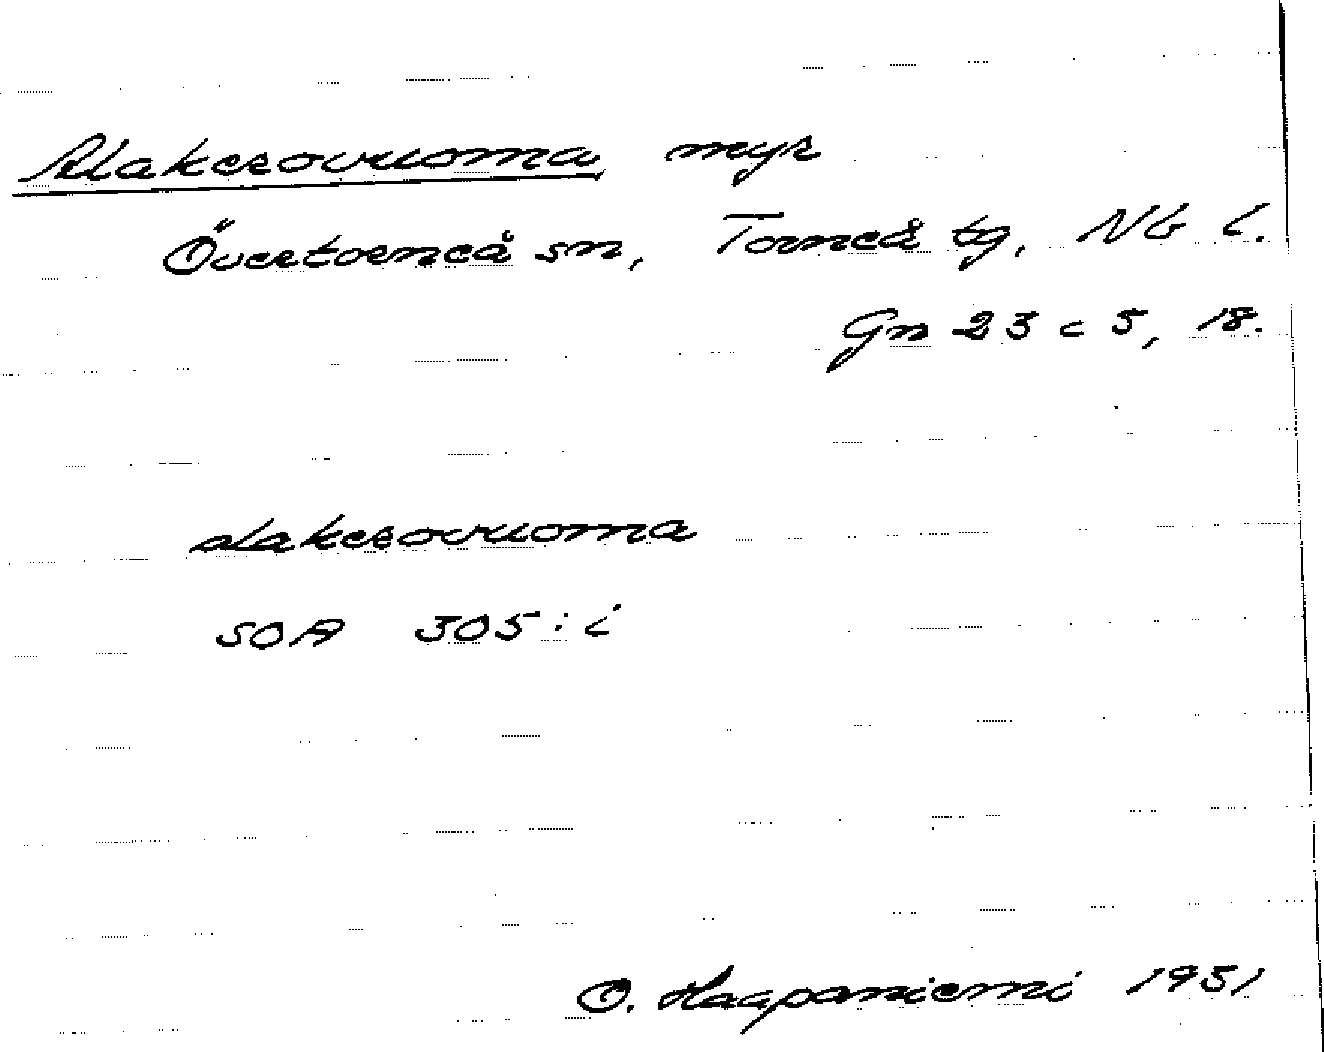 Alakerovuoma myr
Övertorneå sn, Torneå tg, Nb l.
Gn 23 c 5, 18.
alakerovuoma
SOA 305:i
O. Haapaniemi 1951